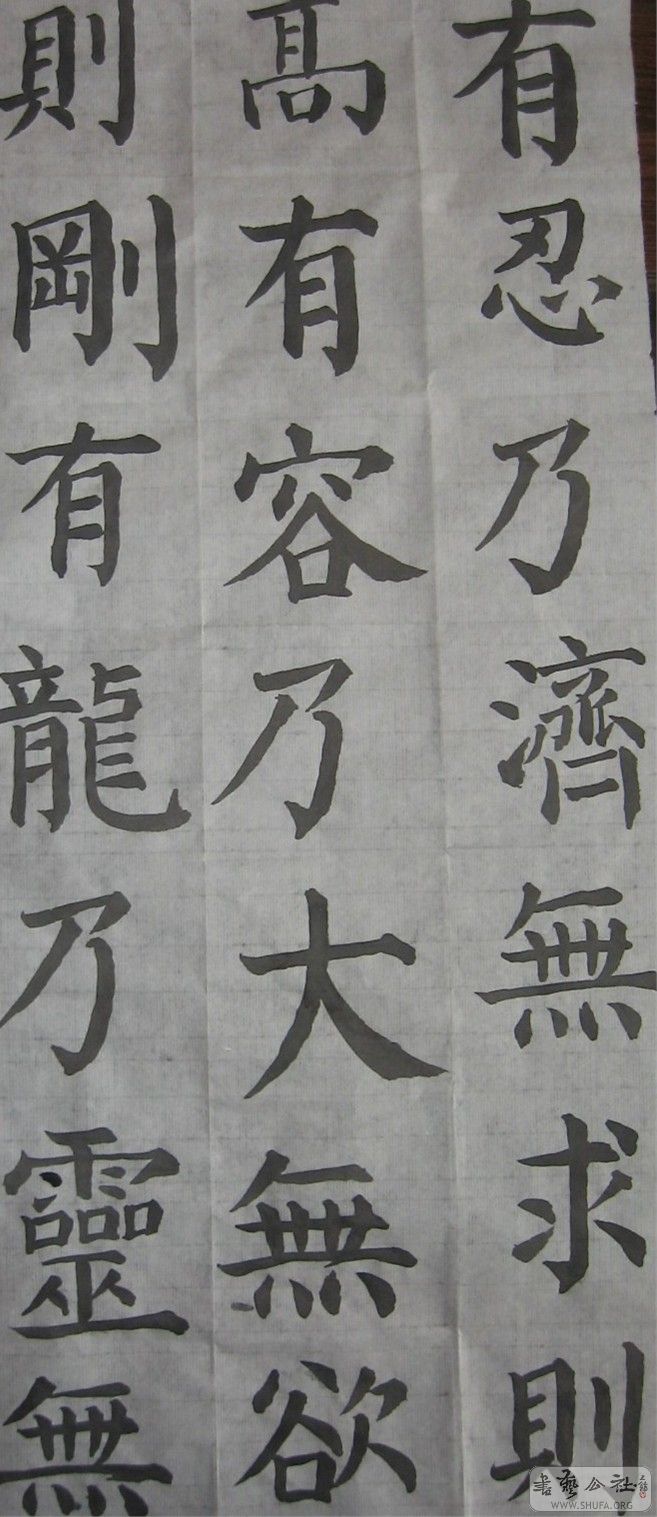 有忍乃濟無求則
高有容乃大無欲
則剛有龍乃靈無
書藝公社
WWW.SHUFA.ORG